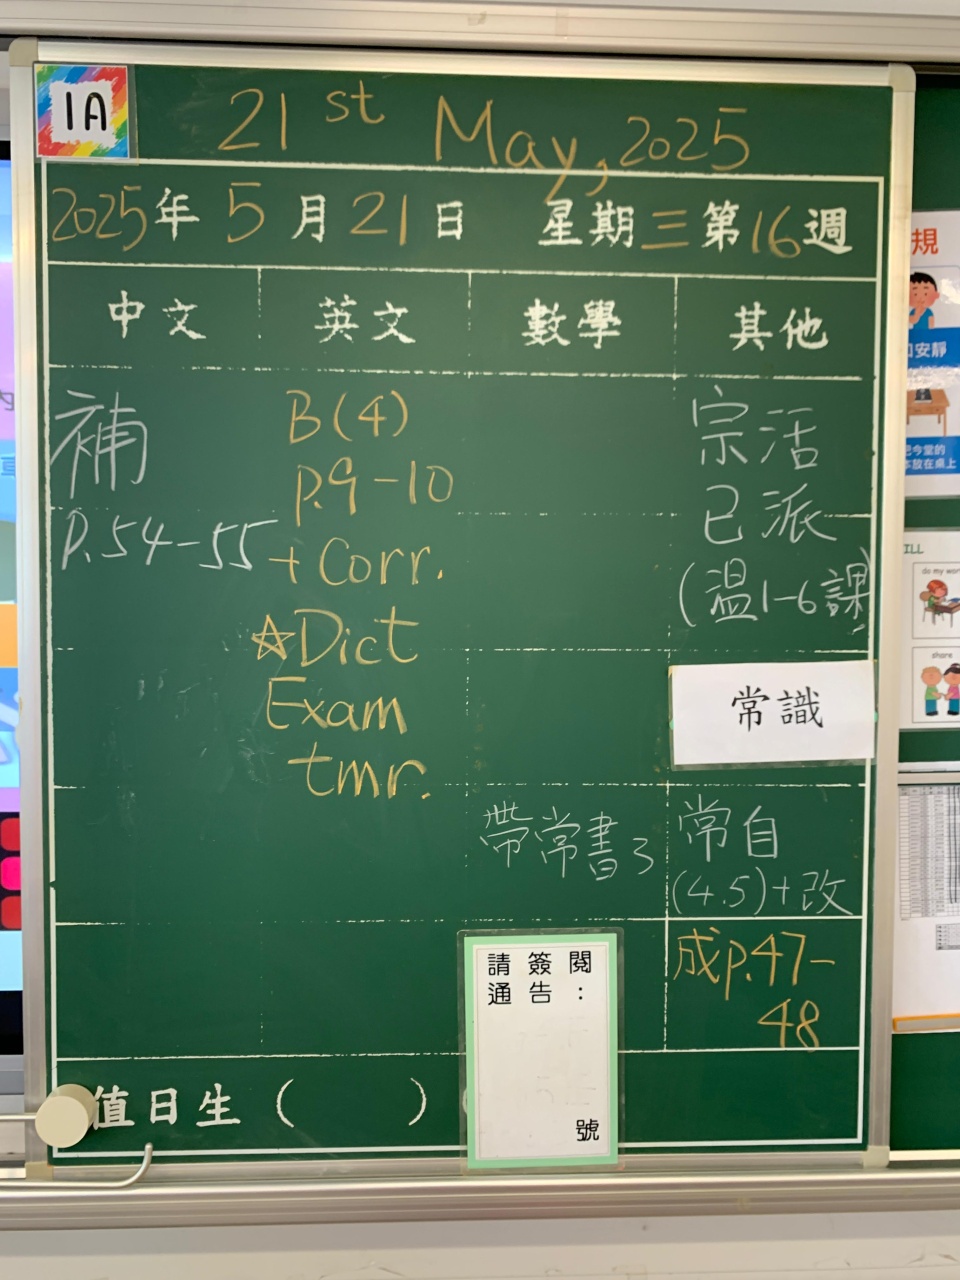 1A
21st May, 2025
2025年5月21日 星期三第16週
中文 英文 數學 其他
補
P.54-55
B(4)
p.9-10
+ Corr.
☆Dict
Exam
tmr.
宗活
已派
(温1-6課)
常識
帶常書
常自
(4.5)+改
成p.47-
48
請簽閱
通告：
號
值日生 ( )
規
安靜
把今堂的
放在桌上
ILL
do my wor
share